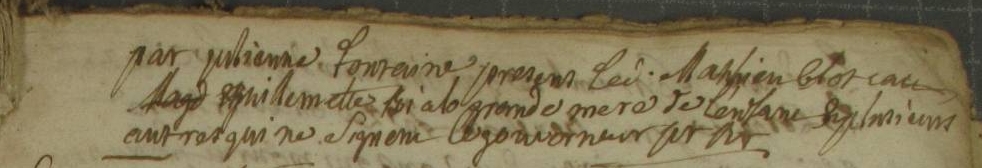 par julienne Fontaine presens led. Mathieu blot
Magd & guillemette grande mere de lenfant & plusieurs
autres qui ne signent Legouverneur ptr